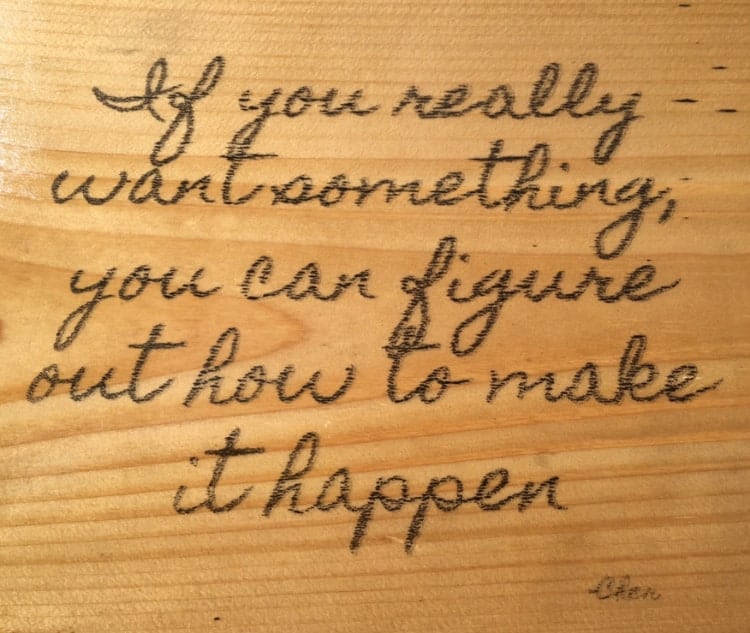 If you really
want something,
you can figure
out how to make
it happen
Cher